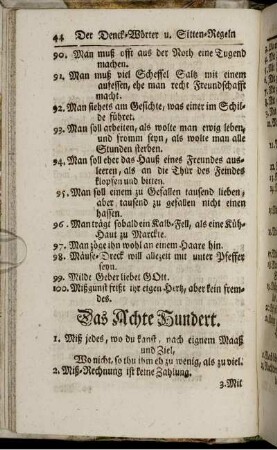 44 Der Denck-Wörter u. Sitten-Regeln
90. Man muß offt aus der Noth eine Tugend
machen.
91. Man muß viel Scheffel Saltz mit einem
aufessen, ehe man recht Freundschafft
macht.
92. Man siehets am Gesichte, was einer im Schil-
de führet.
93. Man soll arbeiten, als wolte man ewig leben,
und fromm seyn, als wolte man alle
Stunden sterben.
94. Man soll eher das Hauß eines Freundes aus-
leeren, als an die Thür des Feindes
klopfen und bitten.
95. Man soll einem zu Gefallen tausend lieben,
aber tausend zu gefallen nicht einen
hassen.
96. Man trägt sobald ein Kalb-Fell, als eine Küh-
Haut zu Marckte.
97. Man zöge ihn wohl an einem Haare hin.
98. Mäuse-Dreck will allezeit mit unter Pfeffer
seyn.
99. Milde Geber liebet GOtt.
100. Mißgunst frißt ihr eigen Hertz, aber kein frem-
des.
Das Achte Hundert.
1. Miß jedes, wo du kanst, nach eignem Maaß
und Ziel,
Wo nicht, so thu ihm eh zu wenig, als zu viel.
2. Miß-Rechnung ist keine Zahlung.
3. Mit